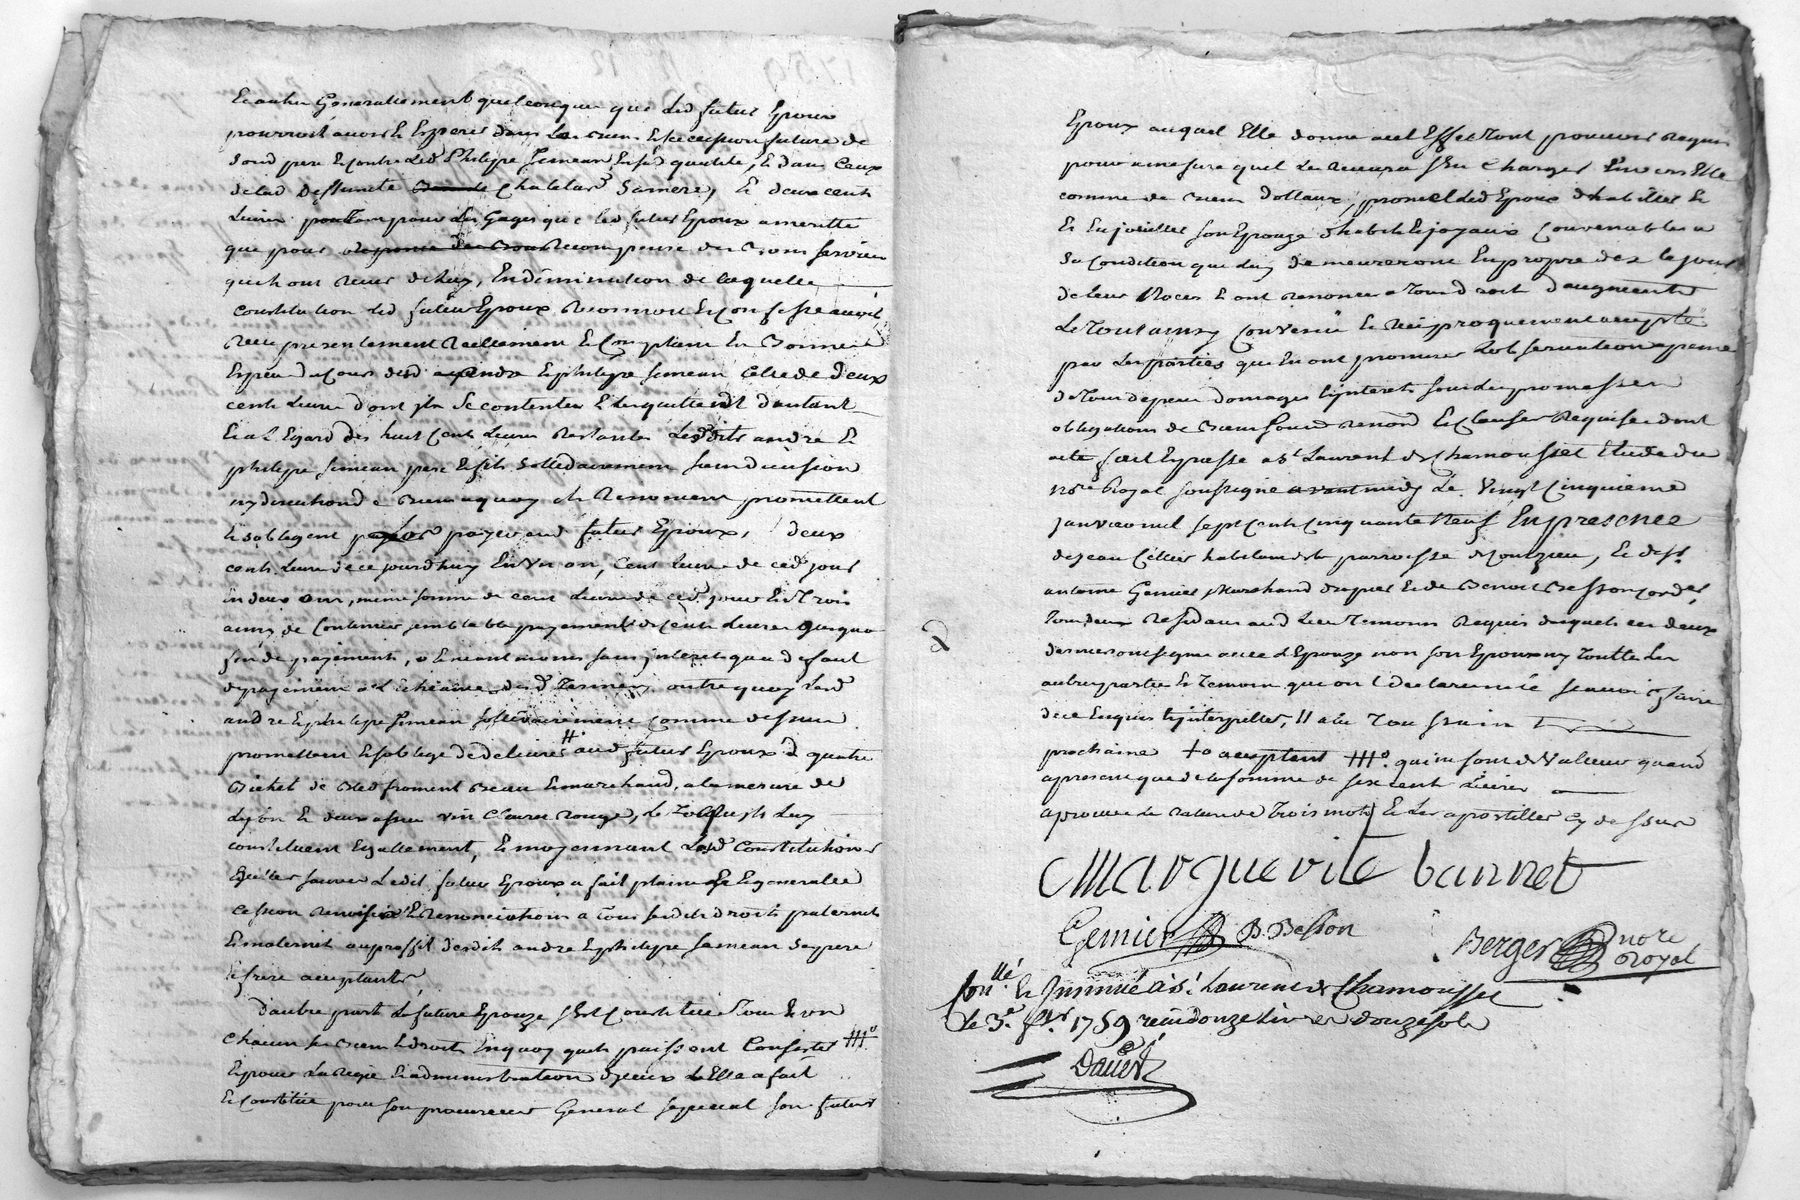 Et autres Generallement quelconque que led futur Epoux
pourroit avoir Et Esperer dans les biens Et succession future de
Sond pere Et contre led Philipe Simean En sa qualité, Et dans Ceux
de lad Deffuncte Chatelard Sa mere, Et deux cents
Livres pour les Gages que led futur Epoux a merité
que pour Recompense des bons services
quils ont Receus de luy, En diminution de laquelle
constitution led futur Epoux Reconnoit Et confesse avoir
Receu presentement Reellement Et Comptant En bonnes
Especes du Cours desd andre Et philipe Simean Celle de deux
cents Livres dont il se contente Et les quitte d'autant
Et a l'Egard des huit Cents Livres Restantes Lesdits andré Et
philipe Simean pere Et fils Sollidairement sans division
ny discution de biens a quoy ils Renoncent promettent
Et s'obligent payer aud futur Epoux, deux
cents Livres de ce jourdhuy En Un an, Cent Livres de ced jour
en deux ans, meme somme de cent Livres de ced jour En Trois
ans, de Continuer semblable payement de Cents Livres jusqua
fin de payement, sans interets qua deffaut
de payement a L'Echeance desd Termes, outre quoy lesd
andre Et philipe Simean sollidairement comme dessus
promettent Et s'oblige de delivrer # aud futur Epoux quatre
Bichet de Bled froment Beau Et marchand, a la mesure de
Lyon Et deux asnees vin Clairet rouge, Le Tout quils luy
constituent Egallement, Et moyennant Lesd Constitutions
Ledit futur Epoux a fait plaine Et generalle
cession Remission Et Renonciation a Tous sesdits droits paternels
Et maternels au proffit desdits andre Et philipe Simean Son pere
Et frere acceptants
D'autre part La future Epouze s'Est Constituée Tous Et un
chacun ses biens Et droits En quoy quils puissent Consister #o
Et pour La Regie Et administration d'yceux Elle a fait
Et Constitué pour son procureur General special son futur
Epoux auquel Elle donne a cet Effet Tout pouvoir Requis
pour a mesure quil Les Recevra s'En Charger Envers Elle
comme de biens dottaux, promet led Epoux d'habiller Et
Et Enjoieller son Epouze d'habits Et joyaux Convenables a
Sa Condition qui luy demeureront En propre des le jour
de leurs Noces Et ont Renoncé a Tout droit d'augment
Le Tout ainsy Convenu Et Reciproquement accepté
par Les parties qui En ont promises L'observation a peine
de Tous depens domages Et interets sous les promesses
obligations de biens Renond Et Clauses Requises dont
acte fait Et passé a St Laurent de Chamousset Etude du
nore Royal soussigné avant midy Le Vingt Cinquieme
janvier mil sept Cents Cinquante Neuf En presence
de jean Cellier habitant de la parroisse de montzieu, Et de sr
antoine Gemier Marchand drapier Et de Benoit Besson Cordier
Tous deux Residans aud Lieu Temoins Requis Lesquels ces deux
derniers ont signé avec l'Epouze non son Epoux ny Toutes Les
autres parties Et Temoin qui ont declaré ne scavoir signer
de ce Enquis Et interpellés, # a la Toussaint
prochaine +o acceptant #o. qui ne sont de Valleur quand
a present que de la somme de six cent Livres
aprouvé La Rature de trois mots Et Les apostilles Cy dessus
Marguerite bannet
Gemier B. Besson
Berger nore
Royal
Conllé. Et Insinué a St Laurent de Chamousset
Le 3e. fevr 1759 recu donze livres donze sols
Davier